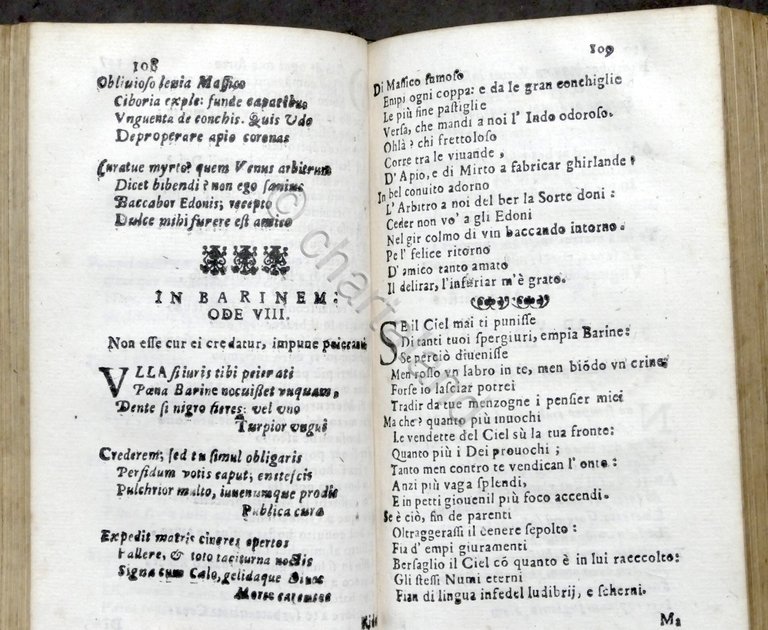 108
Obliuioso leuia Massico
Ciboria exple: funde capacibus
Vnguenta de conchis. Quis Vdo
Deproperare apio coronas
Curatue myrto? quem Venus arbitrum
Dicet bibendi? non ego sanius
Baccabor Edonis; recepto
Dulce mihi furere est amico
IN BARINEM:
ODE VIII.
Non esse cur ei credatur, impune peierante
VLLA si iuris tibi peierati
Pœna Barine nocuisset vnquam,
Dente si nigro fieres: vel vno
Turpior vngui
Crederem; sed tu simul obligasti
Perfidum votis caput, enitescis
Pulchrior multo, iuuenumque prodis
Publica cura
Expedit matris cineres opertos
Fallere, & toto taciturna noctis
Signa cum Cælo, gelidaque Diuos
Morte carentes
109
Di Massico fumoso
Empi ogni coppa: e da le gran conchiglie
Le più fine pastiglie
Versa, che mandi a noi l'Indo odoroso.
Ohlà? chi frettoloso
Corre tra le viuande,
D'Apio, e di Mirto a fabricar ghirlande?
In bel conuito adorno
L'Arbitro a noi del ber la Sorte doni:
Ceder non vo' a gli Edoni
Nel gir colmo di vin baccando intorno.
Pe l' felice ritorno
D'amico tanto amato
Il delirar, l'infuriar m'è grato.
SE il Ciel mai ti punisse
Di tanti tuoi spergiuri, empia Barine:
Se perciò diuenisse
Men rosso vn labro in te, men biōdo vn crine,
Forse io lasciar potrei
Tradir da tue menzogne i pensier miei
Ma che? quanto più inuochi
Le vendette del Ciel sù la tua fronte:
Quanto più i Dei prouochi;
Tanto men contro te vendican l'onte:
Anzi più vaga splendi,
E in petti giouenil più foco accendi.
Se è ciò, fin de parenti
Oltraggerassi il cenere sepolto:
Fia d'empi giuramenti
Bersaglio il Ciel cō quanto è in lui raccolto:
Gli stessi Numi eterni
Fian di lingua infedel ludibrij, e scherni.
Ma